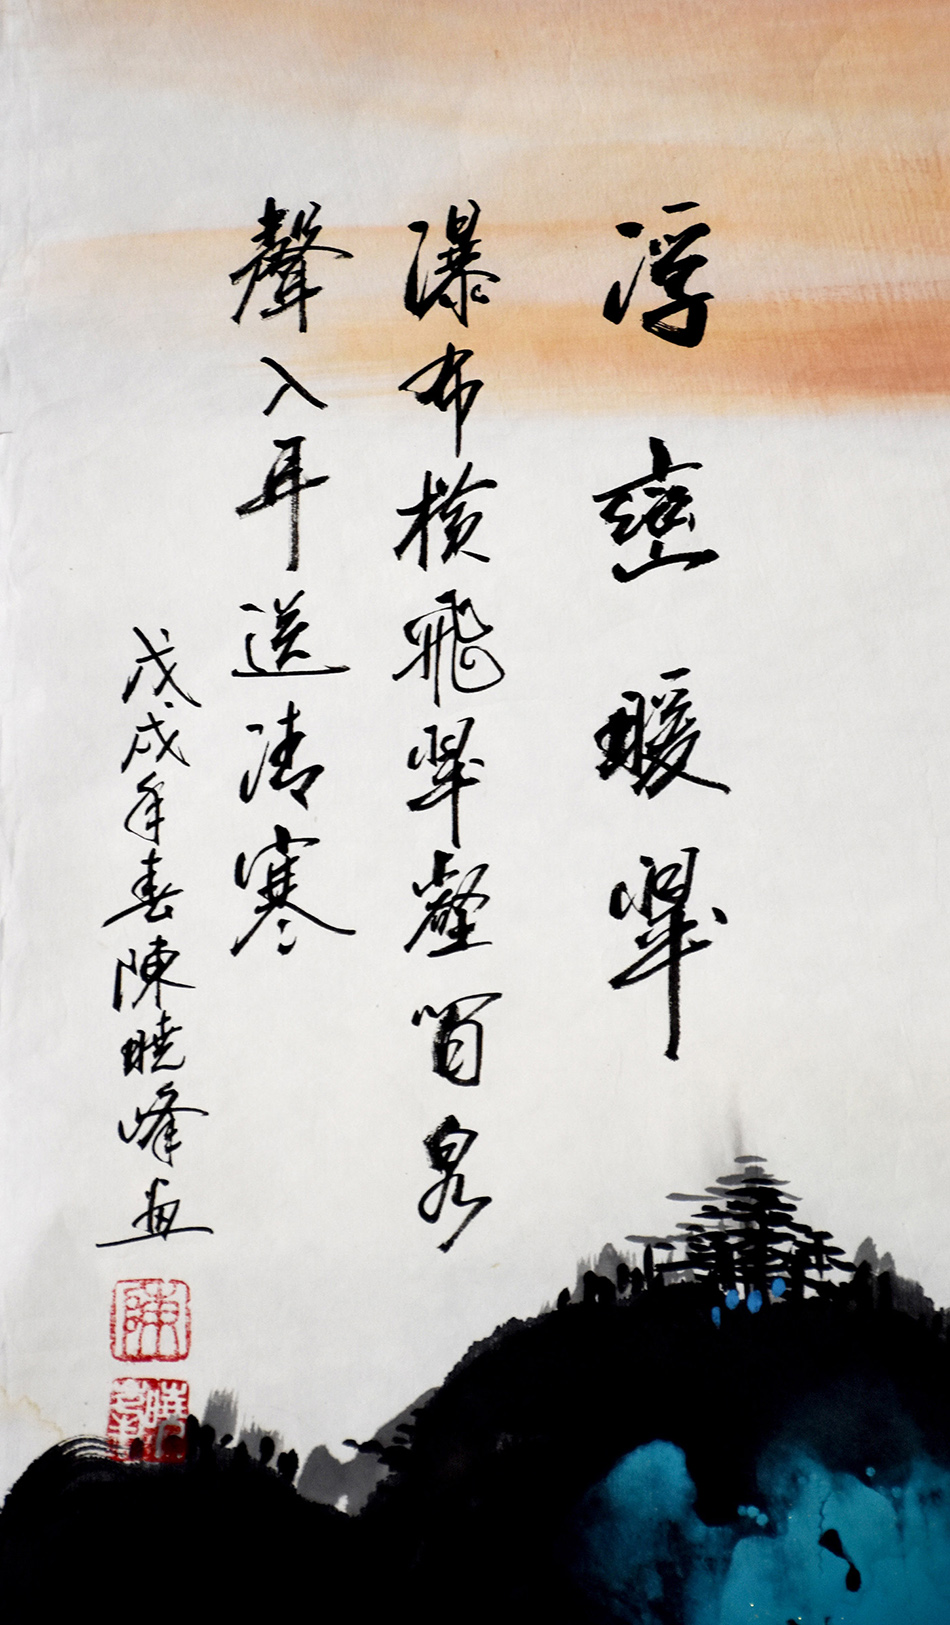 浮巒暖翠
瀑布橫飛翠壑間泉
聲入耳送清寒
戊戌年春陳曉峰畫
陳
曉峰